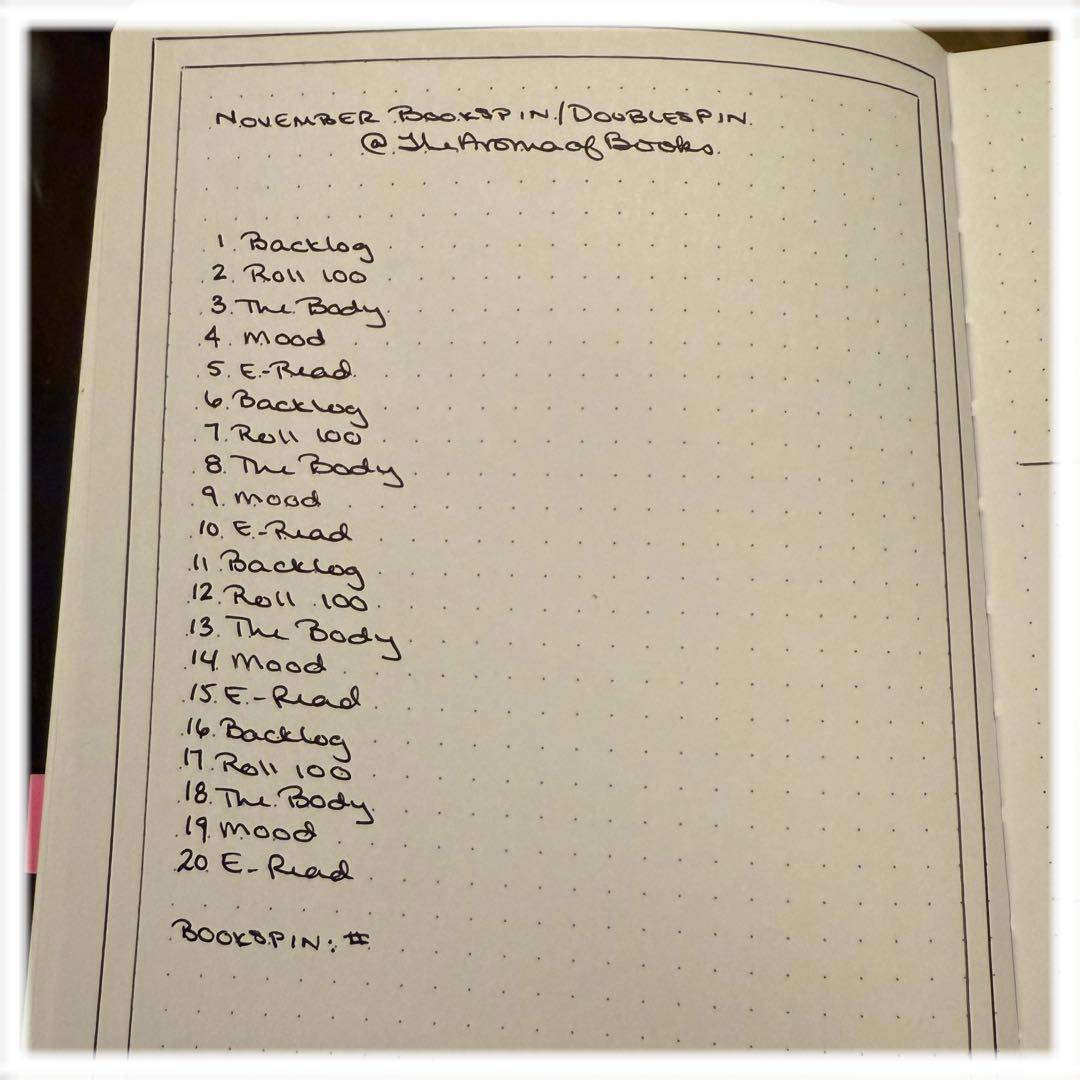 NOVEMBER BOOKSPIN/DOUBLESPIN
@TheAromaofBooks
1. Backlog
2. Roll 100
3. The Body
4. Mood
5. E-Read
6. Backlog
7. Roll 100
8. The Body
9. Mood
10. E-Read
11. Backlog
12. Roll 100
13. The Body
14. Mood
15. E-Read
16. Backlog
17. Roll 100
18. The Body
19. Mood
20. E-Read
BOOKSPIN: #